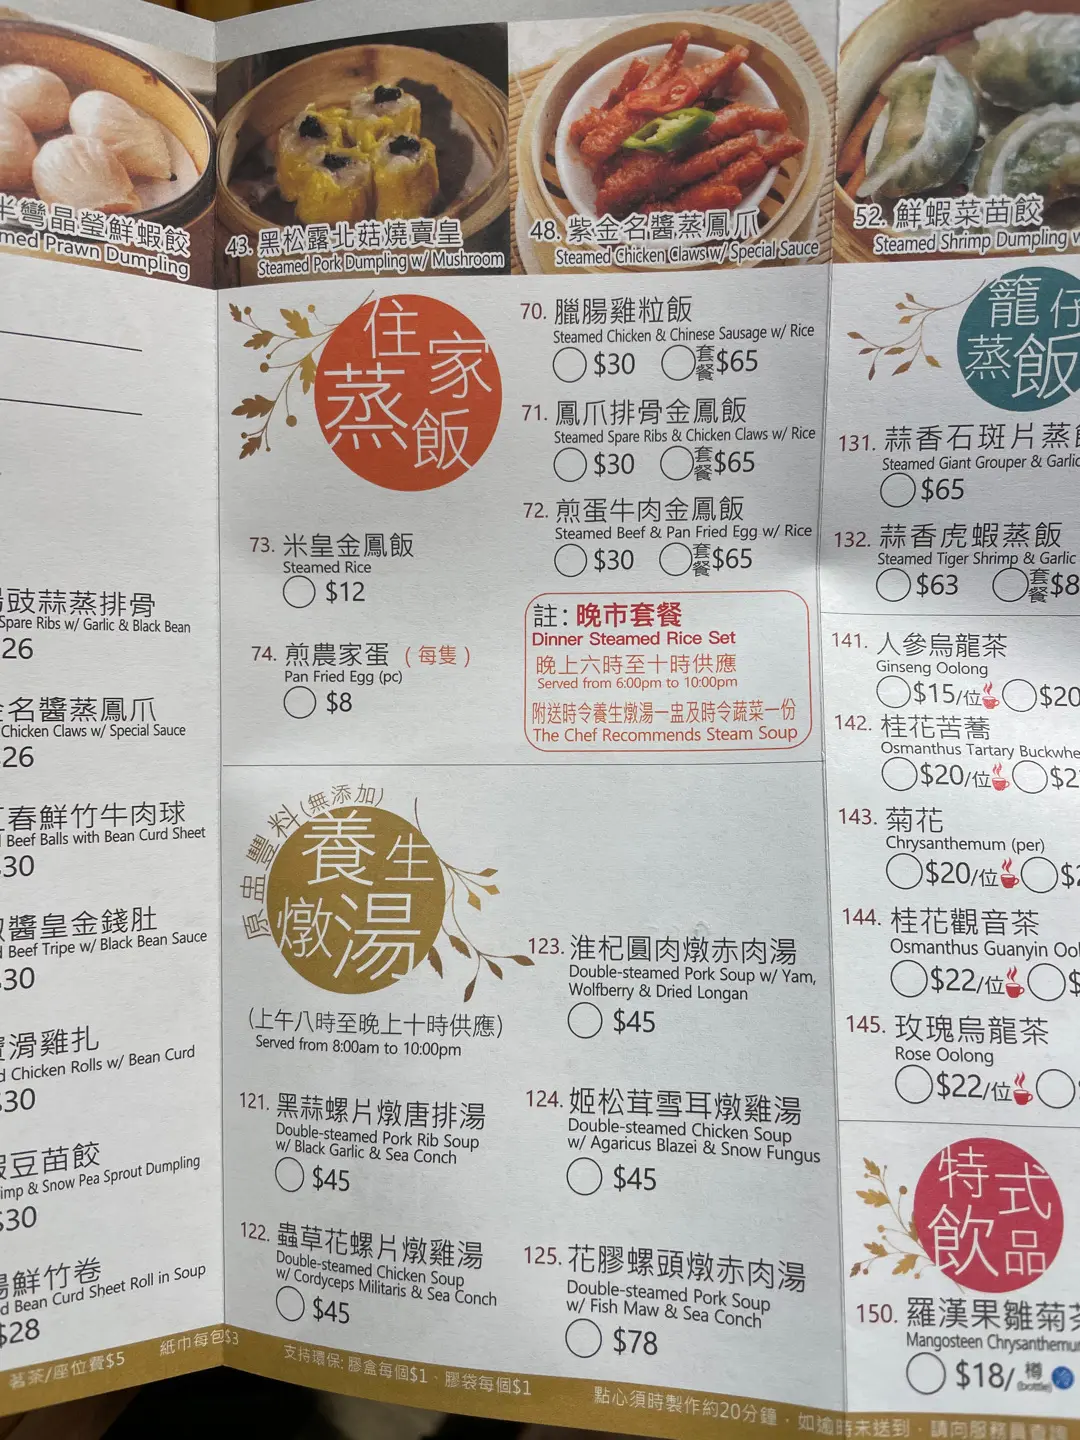 半彎晶瑩鮮蝦餃
med Prawn Dumpling
43. 黑松露北菇燒賣皇
Steamed Pork Dumpling w/ Mushroom
48. 紫金名醬蒸鳳爪
Steamed Chicken Claws w/ Special Sauce
52. 鮮蝦菜苗餃
Steamed Shrimp Dumpling w
豉蒜蒸排骨
Spare Ribs w/ Garlic & Black Bean
26
名醬蒸鳳爪
Chicken Claws w/ Special Sauce
26
春鮮竹牛肉球
Beef Balls with Bean Curd Sheet
$30
醬皇金錢肚
Beef Tripe w/ Black Bean Sauce
$30
滑雞扎
d Chicken Rolls w/ Bean Curd
$30
豆苗餃
imp & Snow Pea Sprout Dumpling
$30
鮮竹卷
d Bean Curd Sheet Roll in Soup
$28
住家蒸飯
73. 米皇金鳳飯
Steamed Rice
$12
74. 煎農家蛋（每隻）
Pan Fried Egg (pc)
$8
70. 臘腸雞粒飯
Steamed Chicken & Chinese Sausage w/ Rice
$30 套餐 $65
71. 鳳爪排骨金鳳飯
Steamed Spare Ribs & Chicken Claws w/ Rice
$30 套餐 $65
72. 煎蛋牛肉金鳳飯
Steamed Beef & Pan Fried Egg w/ Rice
$30 套餐 $65
註: 晚市套餐
Dinner Steamed Rice Set
晚上六時至十時供應
Served from 6:00pm to 10:00pm
附送時令養生燉湯一盅及時令蔬菜一份
The Chef Recommends Steam Soup
原盅豐料(無添加)
養生燉湯
(上午八時至晚上十時供應)
Served from 8:00am to 10:00pm
121. 黑蒜螺片燉唐排湯
Double-steamed Pork Rib Soup
w/ Black Garlic & Sea Conch
$45
122. 蟲草花螺片燉雞湯
Double-steamed Chicken Soup
w/ Cordyceps Militaris & Sea Conch
$45
123. 淮杞圓肉燉赤肉湯
Double-steamed Pork Soup w/ Yam,
Wolfberry & Dried Longan
$45
124. 姬松茸雪耳燉雞湯
Double-steamed Chicken Soup
w/ Agaricus Blazei & Snow Fungus
$45
125. 花膠螺頭燉赤肉湯
Double-steamed Pork Soup
w/ Fish Maw & Sea Conch
$78
籠仔蒸飯
131. 蒜香石斑片蒸飯
Steamed Giant Grouper & Garlic
$65
132. 蒜香虎蝦蒸飯
Steamed Tiger Shrimp & Garlic
$63 套餐 $8
141. 人參烏龍茶
Ginseng Oolong
$15/位 $20
142. 桂花苦蕎
Osmanthus Tartary Buckwhe
$20/位 $2
143. 菊花
Chrysanthemum (per)
$20/位 $2
144. 桂花觀音茶
Osmanthus Guanyin Ool
$22/位 $
145. 玫瑰烏龍茶
Rose Oolong
$22/位
特式飲品
150. 羅漢果雛菊茶
Mangosteen Chrysanthemu
$18/樽 (bottle) 冷
茗茶/座位費$5
紙巾每包$3
支持環保: 膠盒每個$1、膠袋每個$1
點心須時製作約20分鐘，如逾時未送到，請向服務員查詢